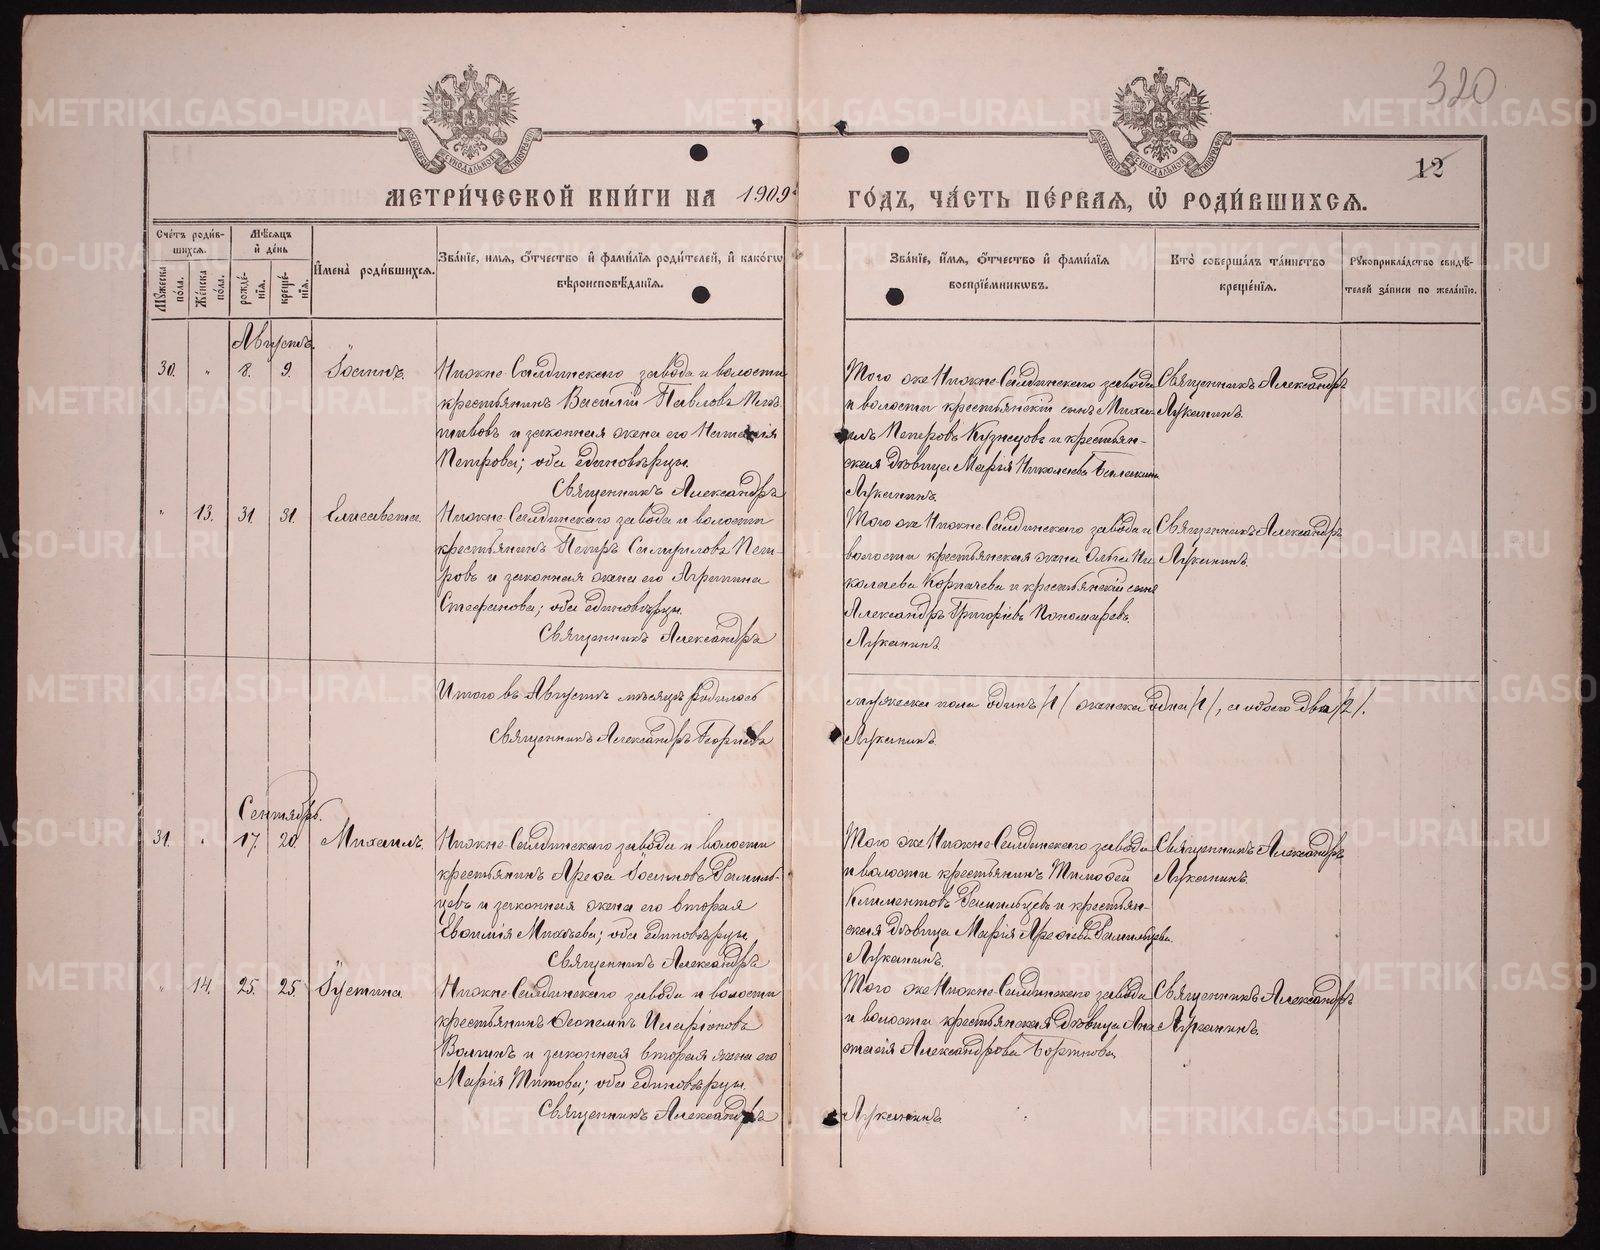 320
12
МЕТРИ́ЧЕСКОЙ КНИ́ГИ НА 1909
ГО́ДЪ, ЧА́СТЬ ПЕ́РВАЯ, Ѡ РОДИ́ВШИХСЯ.
Сче́тъ роди́в-
шихся.
Мѣ́сяцъ
и де́нь
Мꙋ́жеска по́ла.
Же́нска по́ла.
рожде́-
нїя.
креще́-
нїя.
Имена̀ роди́вшихся.
Зва́нїе, имя, о́тчество и фами́лїя роди́телей, и како́гѡ
вѣроисповѣ́данїя.
Зва́нїе, и́мя, о́тчество и фами́лїя
воспрїе́мникѡвъ.
Кто̀ соверша́лъ та́инство
креще́нїя.
Рꙋкоприкла́дство свидѣ́-
телей за́писи по жела́нїю.
Августъ.
30. " 8. 9. Іоаннъ.
Нижне-Салдинскаго завода и волости
крестьянинъ Василій Павловъ
и законная жена его Наталія
Петрова; оба единовѣрцы.
Священникъ Александръ
Того же Нижне-Салдинскаго завода
и волости крестьянскій сынъ Миха-
илъ Петровъ Кузнецовъ и крестьян-
ская дѣвица Марія Николаева
Луканинъ.
Священникъ Александръ
Луканинъ.
" 13. 31. 31. Елисавета.
Нижне-Салдинскаго завода и волости
крестьянинъ Петръ Самуиловъ Пет-
ровъ и законная жена его Агрипина
Стефанова; оба единовѣрцы.
Священникъ Александръ
Того же Нижне-Салдинскаго завода и
волости крестьянская жена Ольга Ни
колаева Корпачева и крестьянскій сынъ
Александръ Григоріевъ Пономаревъ.
Луканинъ.
Священникъ Александръ
Луканинъ.
Итого въ Августѣ мѣсяцѣ родилось
Священникъ Александръ Георгіевъ
мужеска пола одинъ /1/ женска одна /1/, а обоего два /2/.
Луканинъ.
Сентябрь.
31. " 17. 20. Михаилъ.
Нижне-Салдинскаго завода и волости
крестьянинъ Арефа Іоанновъ Замиль-
цевъ и законная жена его вторая
Евѳимія Михѣева; оба единовѣрцы.
Священникъ Александръ
Того же Нижне-Салдинскаго завода
и волости крестьянинъ Тимоѳей
Климентовъ Замильцевъ и крестьян-
ская дѣвица Марія Арефіева Замильцева.
Луканинъ.
Священникъ Александръ
Луканинъ.
" 14. 25. 25. Іустина
Нижне-Салдинскаго завода и волости
крестьянинъ Ѳеопемптъ Иларіоновъ
Волгинъ и законная вторая жена его
Марія Титова; оба единовѣрцы.
Священникъ Александръ
Того же Нижне-Салдинскаго завода
и волости крестьянская дѣвица Ана
стасія Александрова Бортнова
Луканинъ.
Священникъ Александръ
Луканинъ.
METRIKI.GASO-URAL.RU